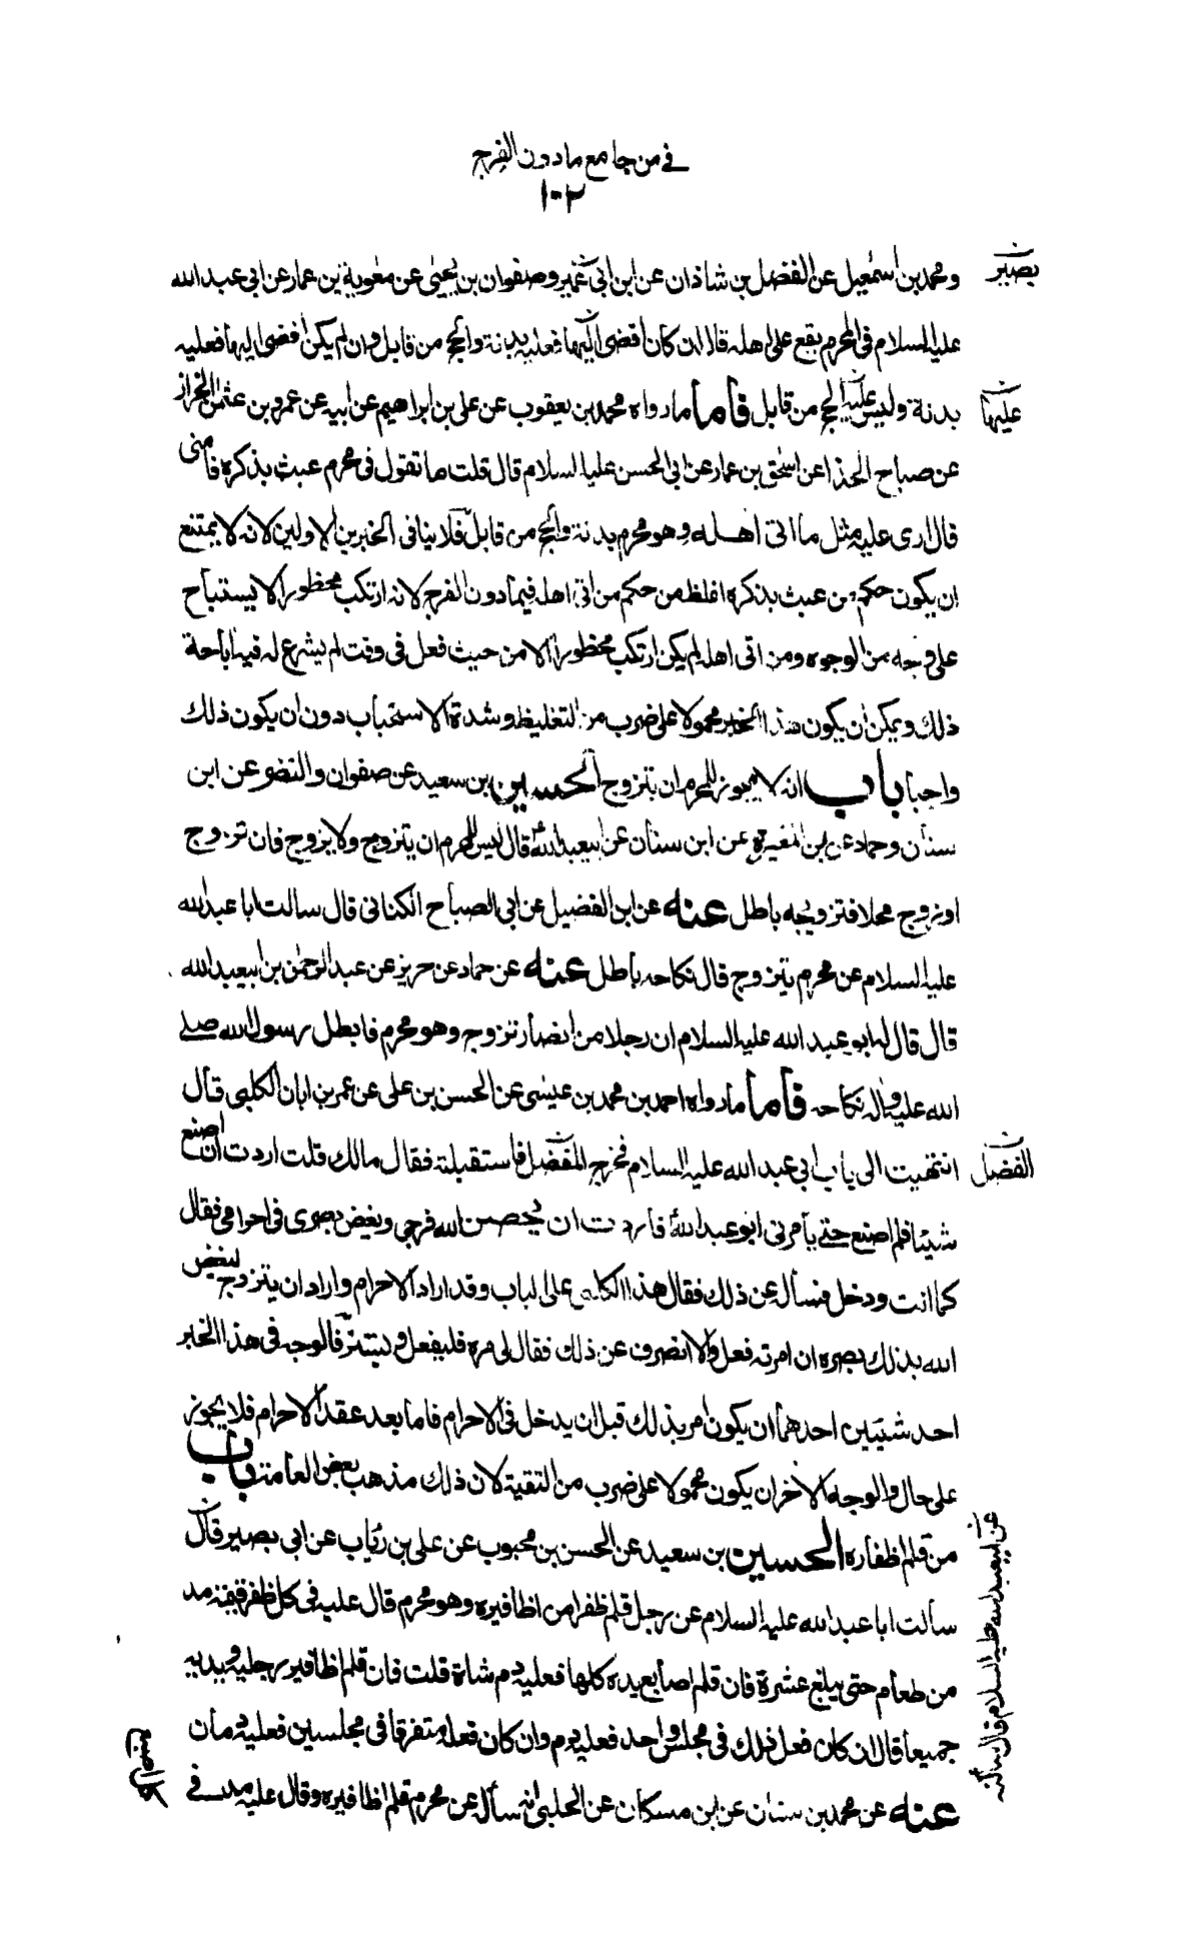 في من جامع ما دون الفرج
١٠٢
ومحمد بن اسمعيل عن الفضل بن شاذان عن ابن ابي عمير وصفوان بن يحيى عن معوية بن عمار عن ابي عبد الله
بصير
عليه السلام في المحرم يقع على اهله قال ان كان افضى اليها فعليه بدنة والحج من قابل وان لم يكن افضى اليها فعليه
بدنة وليس عليه الحج من قابل فاما ما رواه محمد بن يعقوب عن علي بن ابراهيم عن ابيه عن عمرو بن عثمن الخراز
عليها
عن صباح الحذا عن اسحق بن عمار عن ابي الحسن عليه السلام قال قلت ما تقول في محرم عبث بذكره فامنى
قال ارى عليه مثل ما اتى اهله وهو محرم بدنة والحج من قابل فلا ينافي الخبرين الاولين لانه لا يمتنع
ان يكون حكم من عبث بذكره اغلظ من حكم من اتى اهله فيما دون الفرج لانه ارتكب محظورا لا يستباح
على وجه من الوجوه ومن اتى اهله لم يكن ارتكب محظورا الا من حيث فعل في وقت لم يشرع له فيه اباحة
ذلك ويمكن ان يكون هذا الخبر محمولا على ضرب من التغليظ وشدة الاستحباب دون ان يكون ذلك
واجبا باب انه لا يجوز للمحرم ان يتزوج الحسين بن سعيد عن صفوان والنضر عن ابن
سنان وحماد عن بن المغيرة عن ابن سنان عن ابيعبد الله قال ليس للمحرم ان يتزوج ولا يزوج فان تزوج
او زوج محلا فتزويجه باطل عنه عن ابن الفضيل عن ابي الصباح الكناني قال سالت ابا عبد الله
عليه السلام عن محرم يتزوج قال نكاحه باطل عنه عن حماد عن حريز عن عبد الرحمن بن ابيعبد الله
قال قال له ابو عبد الله عليه السلام ان رجلا من انصار تزوج وهو محرم فابطل رسول الله صلى
الله عليه واله نكاحه فاما ما رواه احمد بن محمد بن عيسى عن الحسن بن علي عن عمر بن ابان الكلبي قال
انتهيت الى باب ابي عبد الله عليه السلام فخرج المفضل فاستقبلته فقال مالك قلت اردت ان اصنع
الفضل
شيئا فلم اصنع حتى يأمرني ابو عبد الله فاردت ان يحصن الله فرجي ويغض بصري في احرامي فقال
كما انت ودخل فسأله عن ذلك فقال هذا الكلبي على الباب وقد اراد الاحرام واراد ان يتزوج ليغض
الله بذلك بصره ان امرته فعل والا انصرف عن ذلك فقال لي مره فليفعل وليستتر فالوجه في هذا الخبر
احد شيئين احدهما ان يكون امر بذلك قبل ان يدخل في الاحرام فاما بعد عقد الاحرام فلا يجوز
على حال والوجه الاخر ان يكون محمولا على ضرب من التقية لان ذلك مذهب بعض العامة باب
من قلم اظفاره الحسين بن سعيد عن الحسن بن محبوب عن علي بن رئاب عن ابي بصير قال
سألت ابا عبد الله عليه السلام عن رجل قلم ظفرا من اظافيره وهو محرم قال عليه في كل ظفر قيمة مد
من طعام حتى يبلغ عشرة فان قلم اصابع يديه كلها فعليه دم شاة قلت فان قلم اظافير رجليه ويديه
جميعا قال ان كان فعل ذلك في مجلس واحد فعليه دم وان كان فعله متفرقا في مجلسين فعليه دمان
عنه عن محمد بن سنان عن ابن مسكان عن الحلبي انه سأله عن محرم قلم اظافيره وقال عليه مد في
عن ابيعبد الله عليه السلام قال سألته
كل اصبع